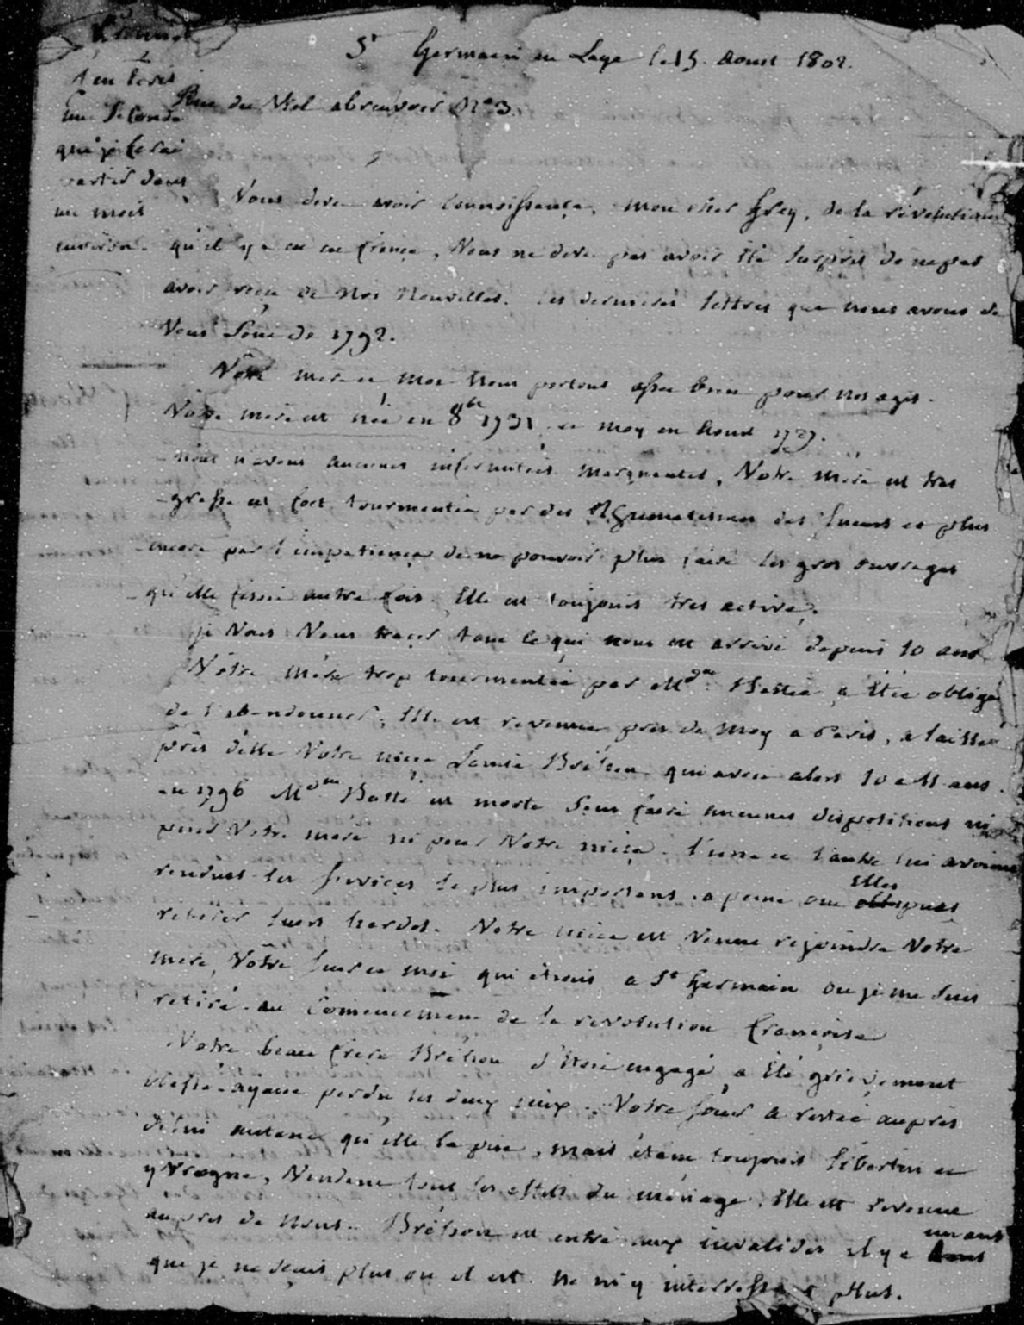 St Germain en Laye le 15 Aoust 1802.
Rue du Viel abreuvoir No 3.
J'en Ecris
une Seconde
que je ferai
partir dans
un mois
environ.
Vous deve avoir connoissance, mon cher frey, de la révolution
qu'il y a eu en france, Vous ne deve pas avoir été surpris de ne pas
avoir reçu de Nos Nouvelles. les dernieres lettres que nous avons de
Vous sont de 1792.
Notre mere et moi Nous portons assee bien pour nos ages.
Notre mere est née en 8bre 1731, et moy en Aoust 1737.
nous n'avons aucunes infirmitées marquentes, Notre mere est tres
grosse et fort tourmentée par des Rhumatismes des et plus
encore par l'impatience de ne pouvoir plus faire les gros ouvrages
qu'elle fesoit autre fois. Elle est toujours tres active,
je Vous tracer tout ce qui nous est arrivé depuis 10 ans
Notre mere trop tourmentée par Mdme Battée, a étée obligé
de l'abandonner, Elle est revenue près de moy a Paris, a laissée
près d'elle Notre niece Louise Bréhon qui avoit alors 10 a 11 ans.
en 1796 Mdme Batté est morte sans faire aucunes dispositions ni
pour Notre mere ni pour Notre niece. l'une et l'autre lui avoient
rendues les services les plus importans, a peine ont Elles pues
retirer leurs hardes. Notre niece est Venue rejoindre Notre
mere, Notre soeur et moi qui étions a St Germain ou je me suis
retiré au Commencement de la revolution françoise
Notre beau frere Bréhon s'étoit engagé, a été grievement
blessé ayant perdu les deux yeux. Notre soeur a restée auprès
de lui autant qu'elle la pue, mais étant toujours libertin et
yvrogne, Vendent tout les effets du menage, Elle est revenue
auprès de nous. Bréhon est entré aux invalides il y a un ans
que je ne sçais plus ou il est ne m'y interressant plus.